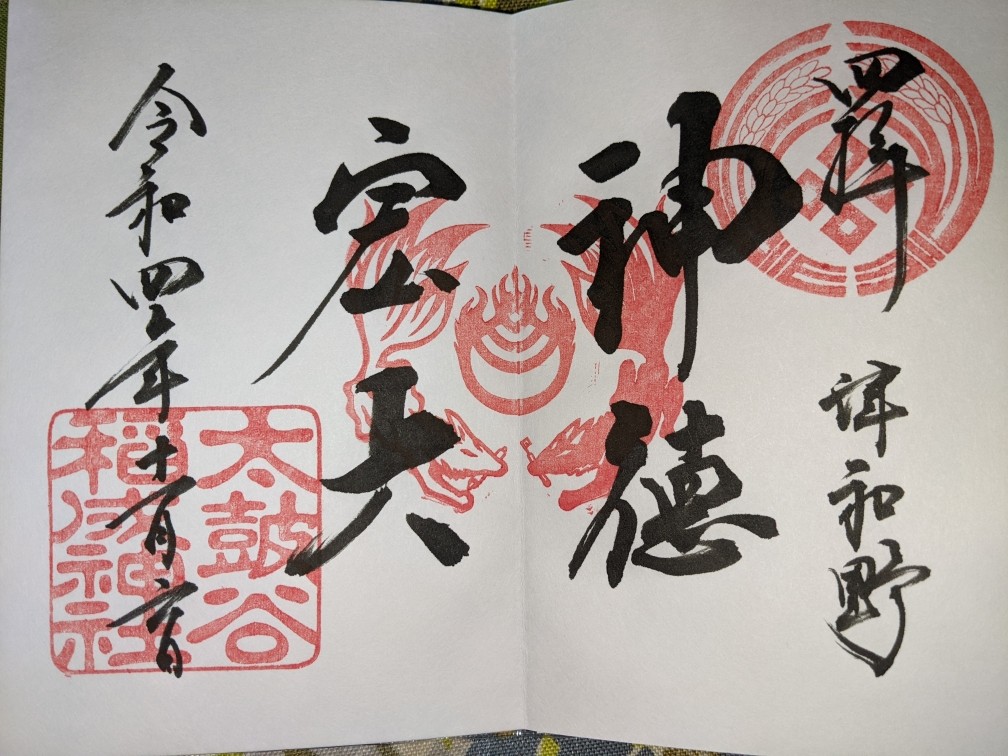 四拝
津和野
神徳
宏
令和四年十一月六日
太鼓谷
稲成神社